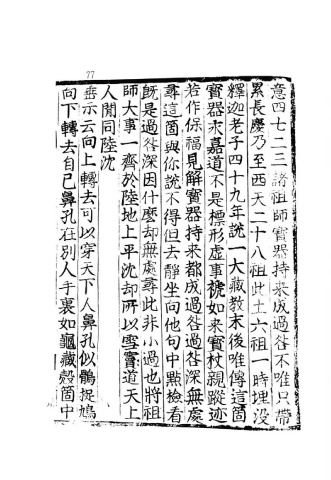 77
意四七二三諸祖師寶器持来成過咎不唯只帶
累長慶乃至西天二十八祖此土六祖一時埋没
釋迦老子四十九年說一大藏教末後唯傳這箇
寶器永嘉道不是標形虛事號如来寶杖親蹤迹
若作保福見解寶器持来都成過咎過咎深無處
尋這箇與你說不得但去靜坐向他句中點檢看
既是過咎深因什麼却無處尋此非小過也將祖
師大事一齊於陸地上平沈却所以雪竇道天上
人間同陸沈
垂示云向上轉去可以穿天下人鼻孔似鶻捉鳩
向下轉去自己鼻孔在別人手裏如龜藏殼箇中